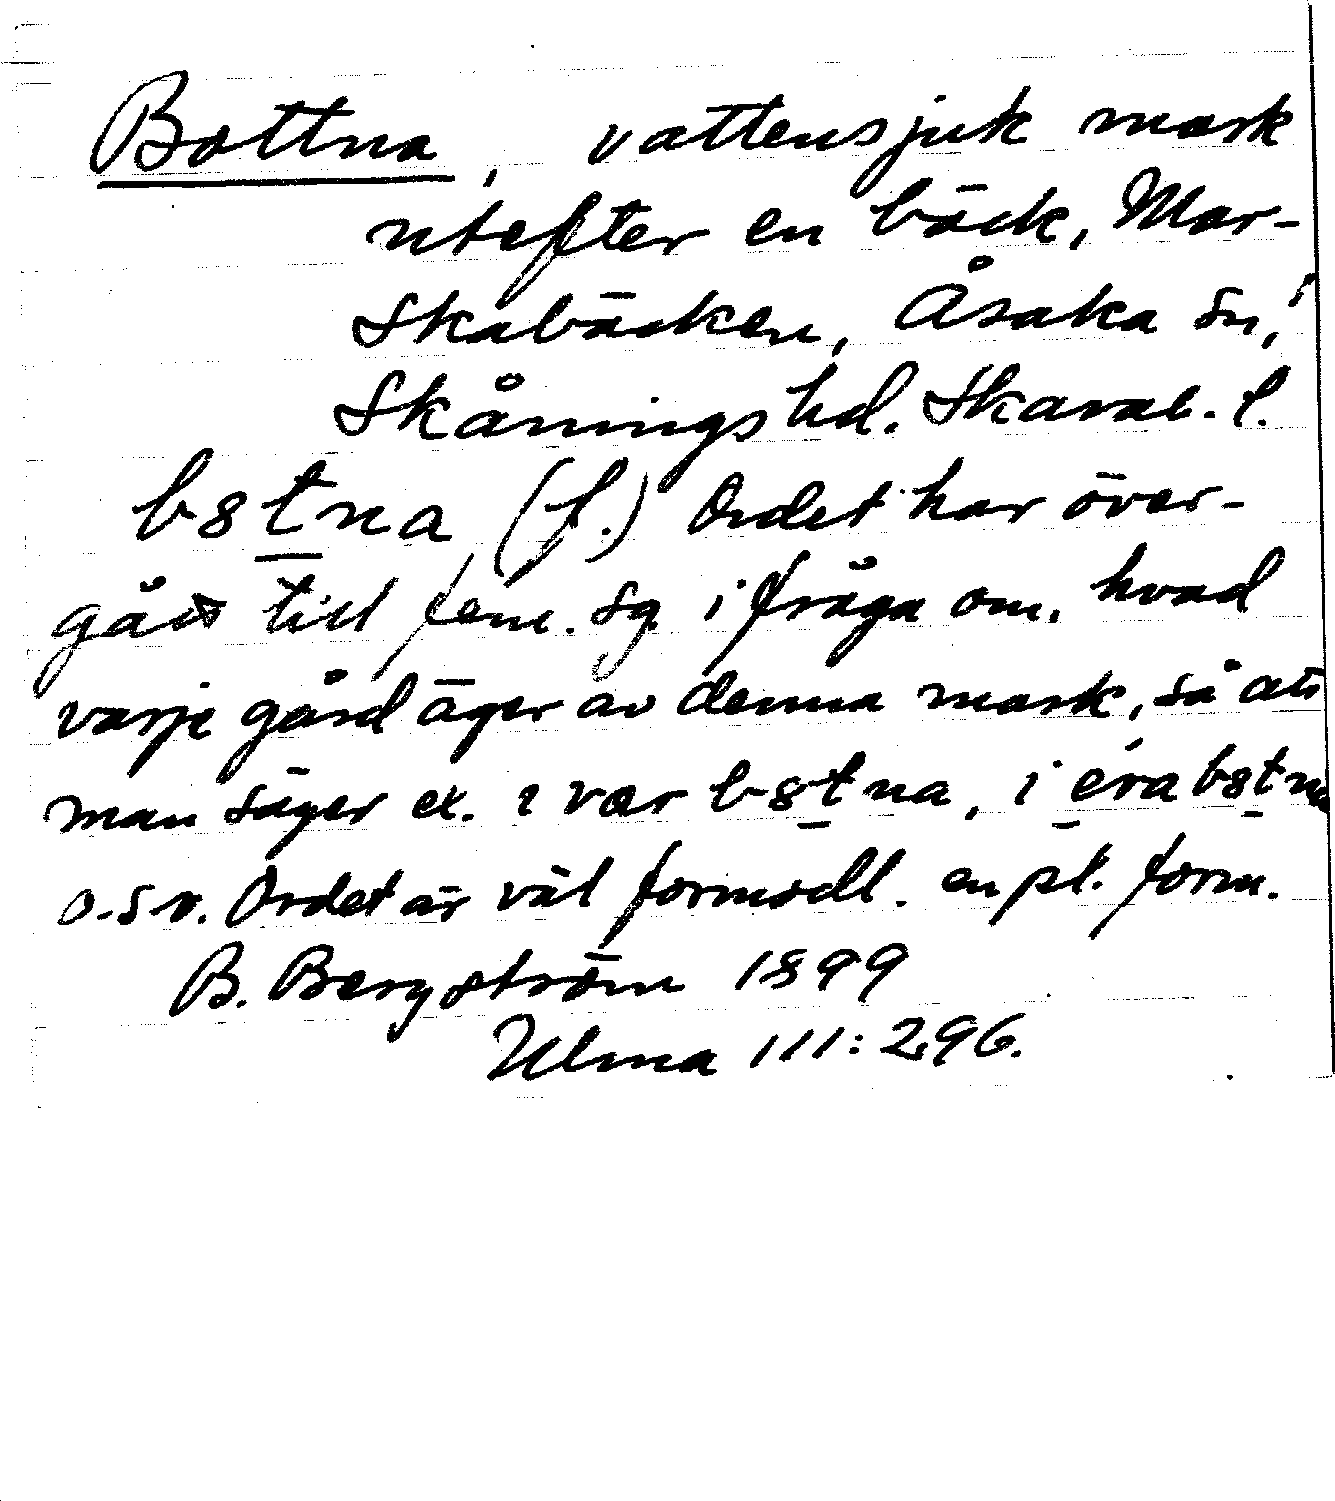 Bottna, vattensjuk mark
utefter en bäck, Mar-
skabäcken, Åsaka sn,
Skånings hd. Skarab. l.
b8tna (f.) Ordet har över-
gått till fem. sg. i fråga om, hvad
varje gård äger av denna mark, så att
man säger ex. i vær b8tna, i éra b8tna
o.s.v. Ordet är väl formodl. en pl. form.
B. Bergström 1899
Ulma 111:296.